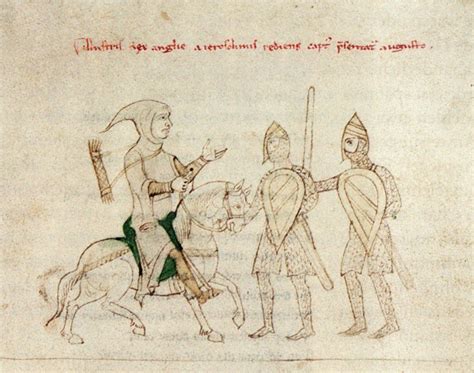 Illustris rex anglie a ierosolimis rediens capt' p̄sentat' augusto.